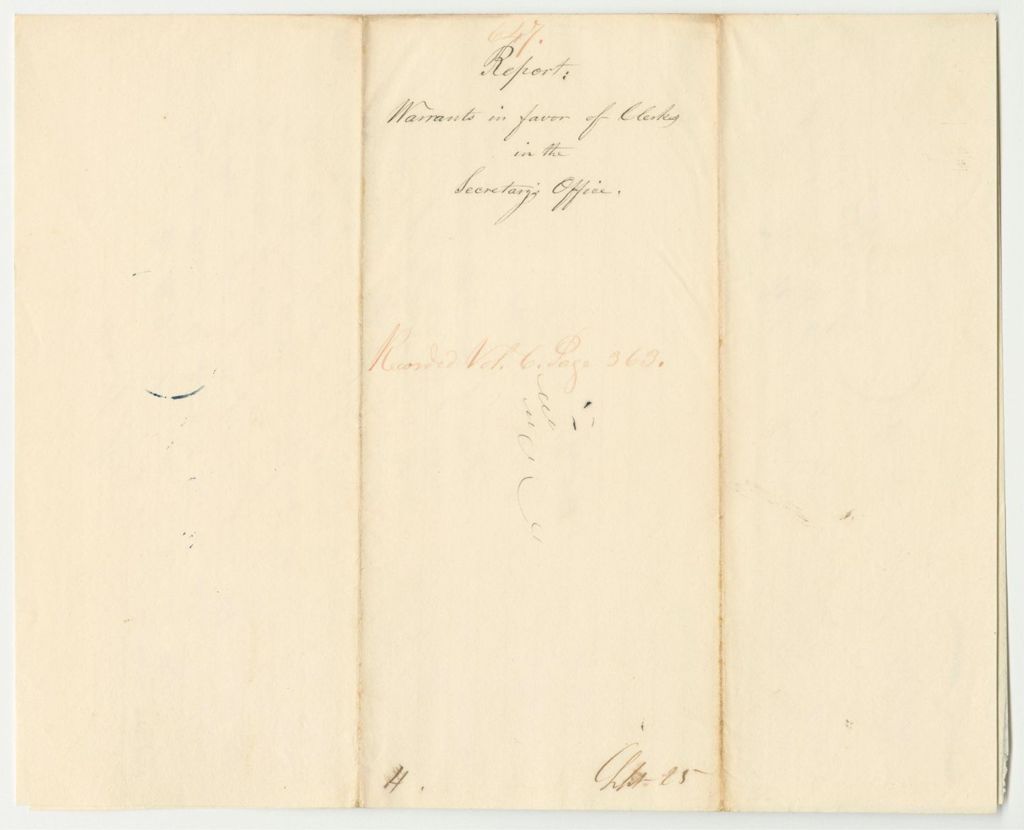 647.
Report:
Warrants in favor of Clerks
in the
Secretary's Office.
Recorded Vol. 6. Page 363.
H.
25